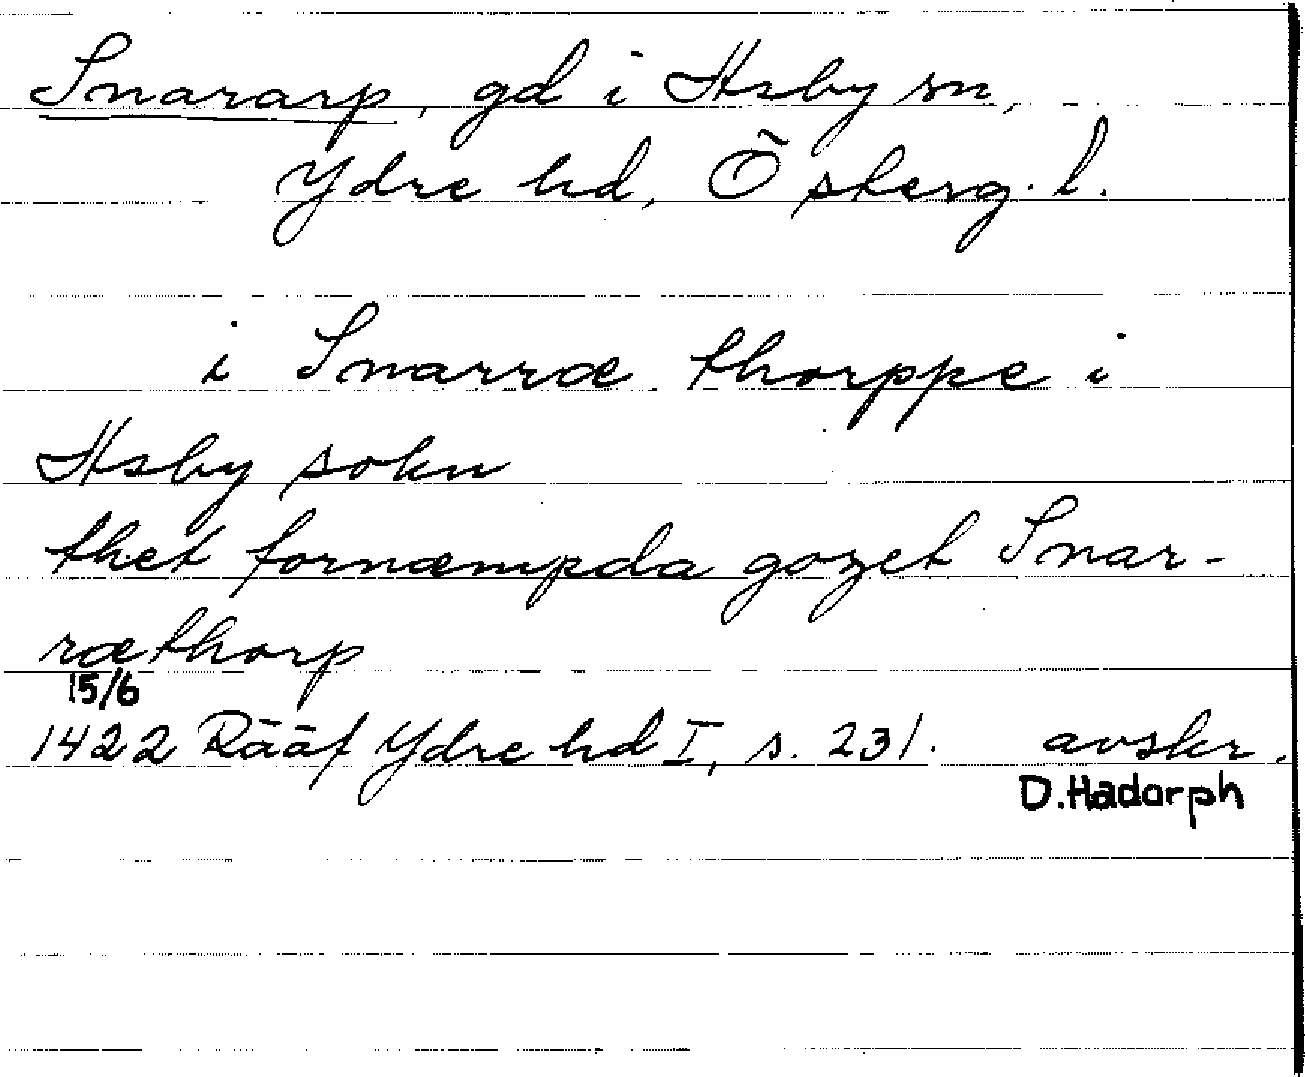 Snararp, gd i Asby sn,
Ydre hd, Österg. l.
i Snarræ thorppe i
Asby sokn
thet fornæmpda gozet Snar-
ræthorp
15/6
1422 Rääf Ydre hd I, s. 231. avskr.
D. Hadorph